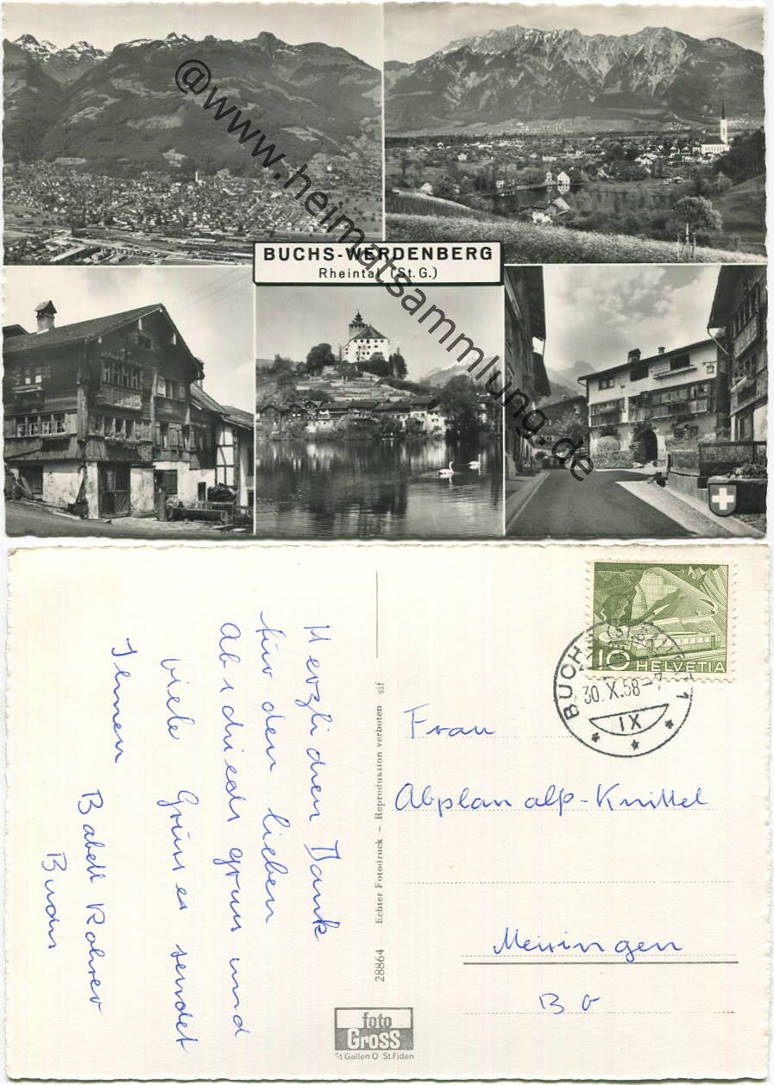 @www.heimatsammlung.de
BUCHS-WERDENBERG
Rheintal (St.G.)
Herzlichen Dank
für den lieben
Abschiedsgruss und
viele Grüsse sendet
Ihnen
Babett Rohrer
Buchs
28864 Echter Fotodruck – Reproduktion verboten sif
foto
GROSS
St.Gallen O St.Fiden
10 HELVETIA
BUCHS
30.X.58-7
IX
Frau
Abplanalp-Knittel
Meiringen
B O